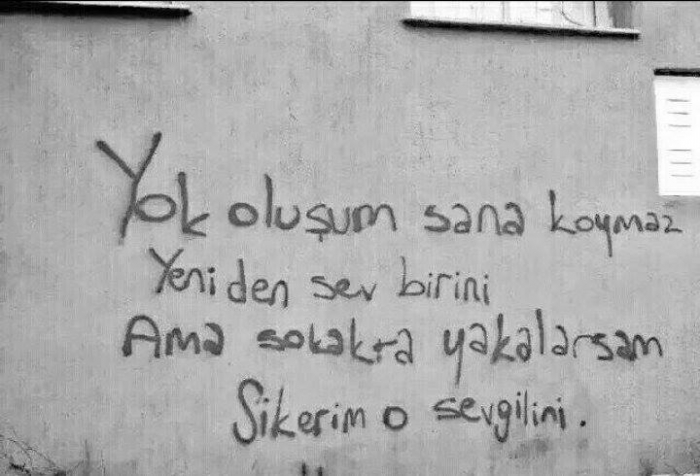 Yok oluşum sana koymaz
Yeniden sev birini
Ama sokakta yakalarsam
Sikerim o sevgilini.